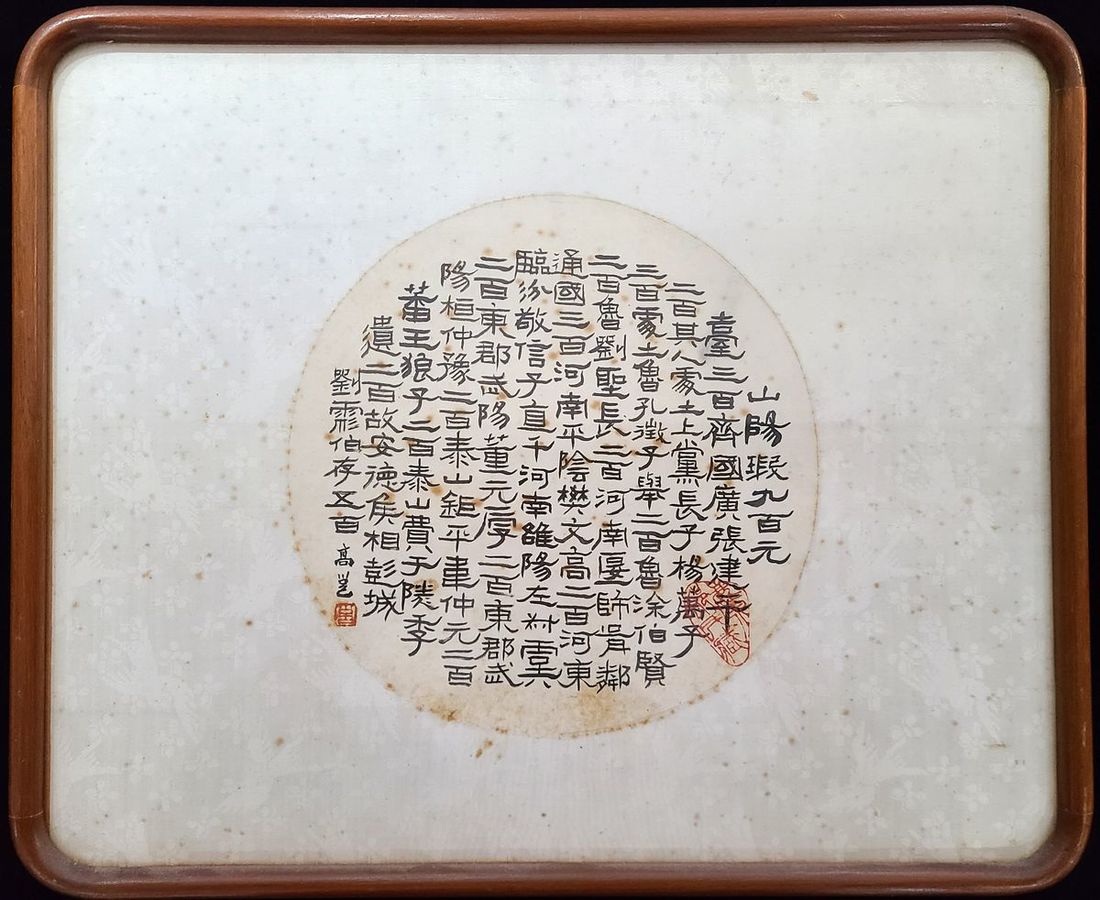 山陽瑕九百元
臺三百齊國廣張建平
二百其人處士上黨長子楊萬子
三百處士魯孔徵子舉二百魯涂伯賢
二百魯劉聖長二百河南匽師胥鄰
通國三百河南平陰樊文高二百河東
臨汾敬信子直千河南雒陽左叔虞
二百東郡武陽董元厚二百東郡武
陽桓仲豫二百泰山鉅平韋仲元二百
蕃王狼子二百泰山費于陵季
遺二百故安德侯相彭城
劉彪伯存五百 高邕